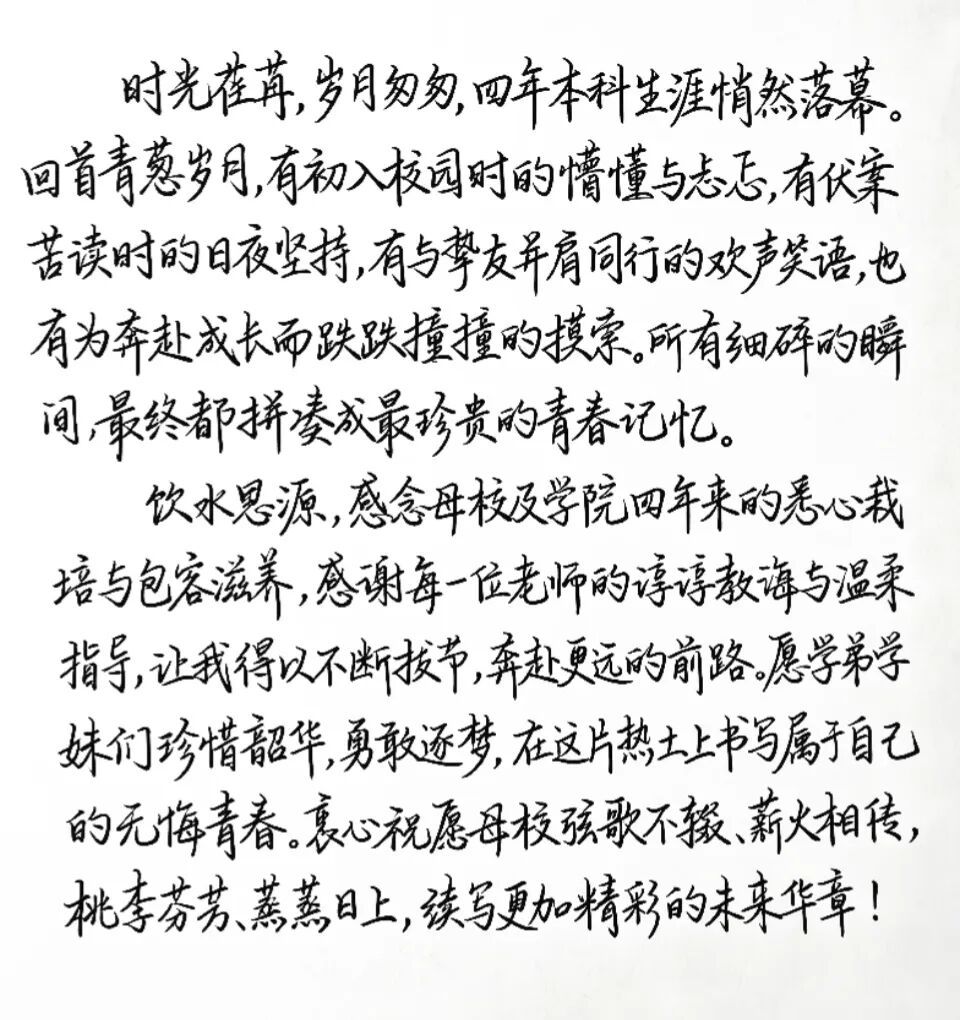 时光荏苒,岁月匆匆,四年本科生涯悄然落幕。
回首青葱岁月,有初入校园时的懵懂与忐忑,有伏案
苦读时的日夜坚持,有与挚友并肩同行的欢声笑语,也
有为奔赴成长而跌跌撞撞的摸索。所有细碎的瞬
间,最终都拼凑成最珍贵的青春记忆。
饮水思源,感念母校及学院四年来的悉心栽
培与包容滋养,感谢每一位老师的谆谆教诲与温柔
指导,让我得以不断拔节,奔赴更远的前路。愿学弟学
妹们珍惜韶华,勇敢逐梦,在这片热土上书写属于自己
的无悔青春。衷心祝愿母校弦歌不辍、薪火相传,
桃李芬芳、蒸蒸日上,续写更加精彩的未来华章!